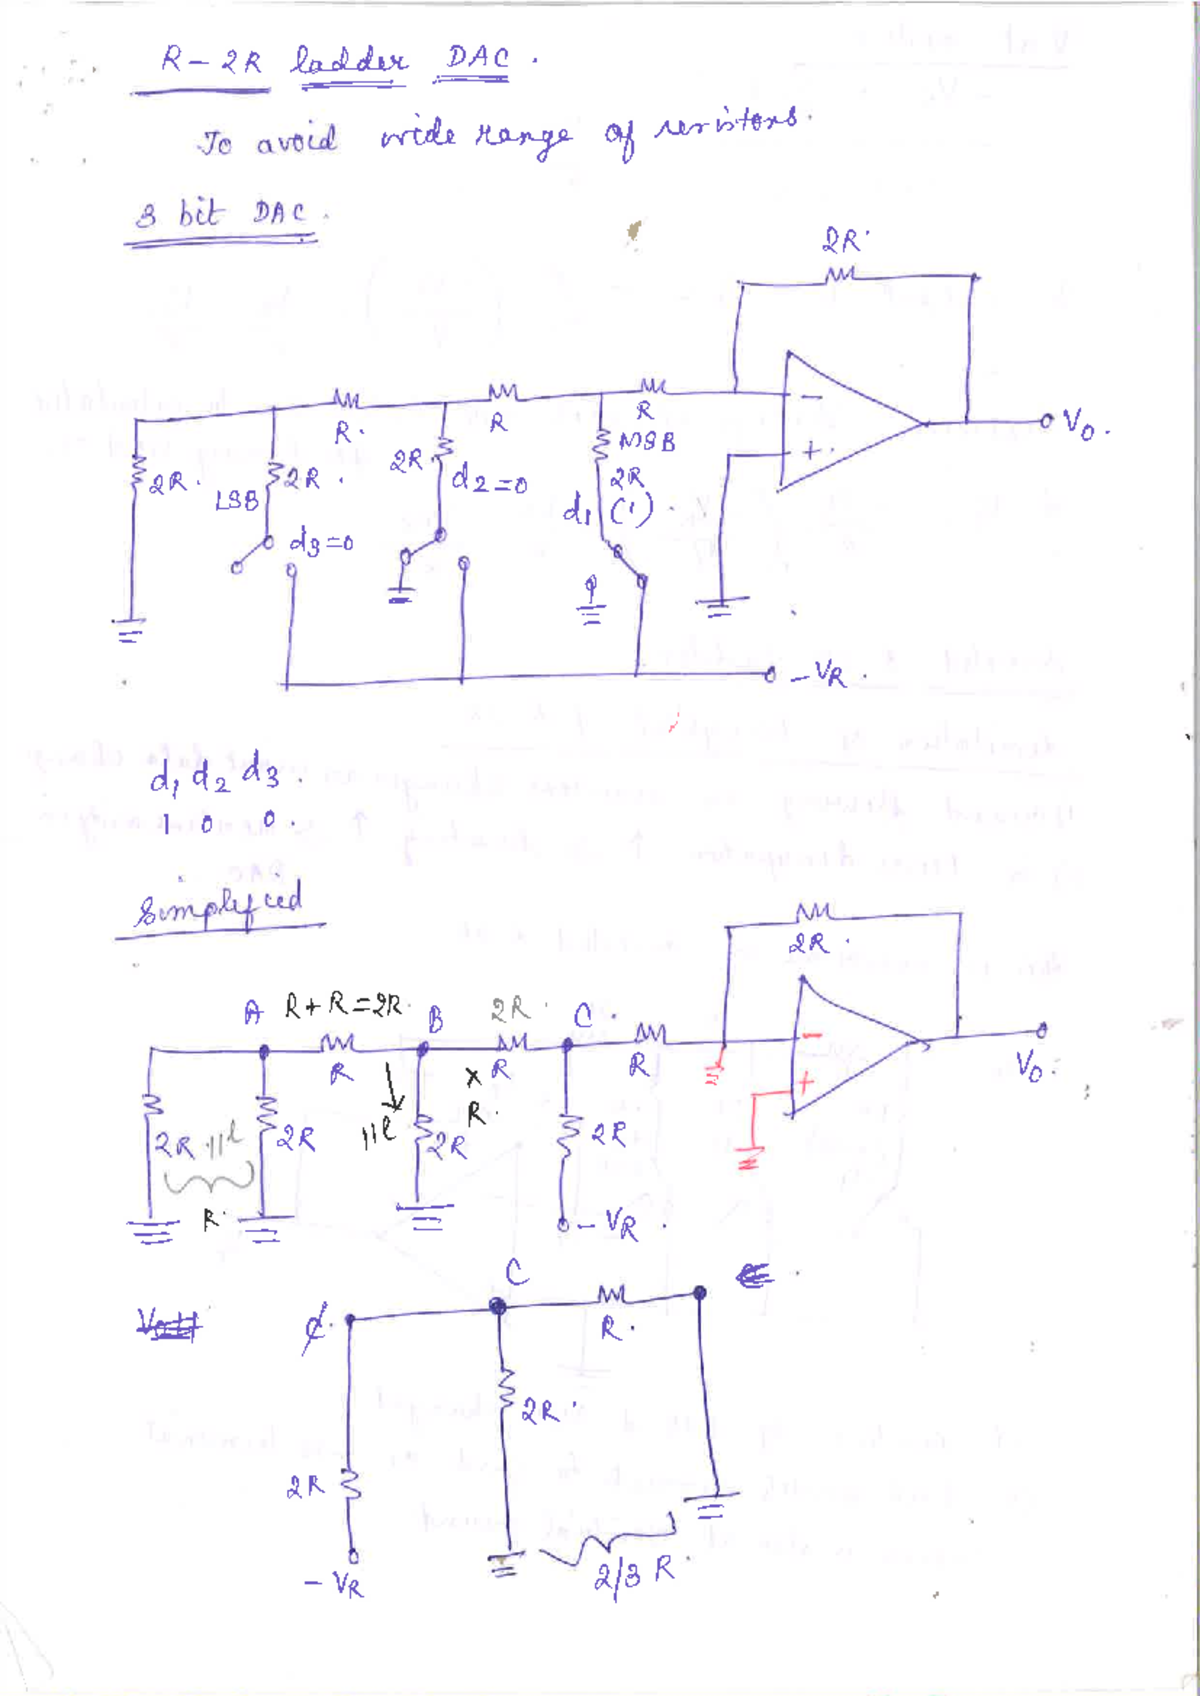 R - 2R ladder DAC.
To avoid wide range of resistors.
3 bit DAC.
2R.
R.
R
R
MSB
2R.
2R.
LSB
2R.
d2=0
2R
d1 (1)
d3=0
-
+
Vo.
-VR.
d1 d2 d3.
1 0 0.
Simplified
2R.
A R+R=2R. B 2R. C.
R
R
R
x
R.
2R 11l 2R
11l
2R
2R
R.
-VR.
-
+
Vo.
C
R.
2R.
2R
-VR
2/3 R.